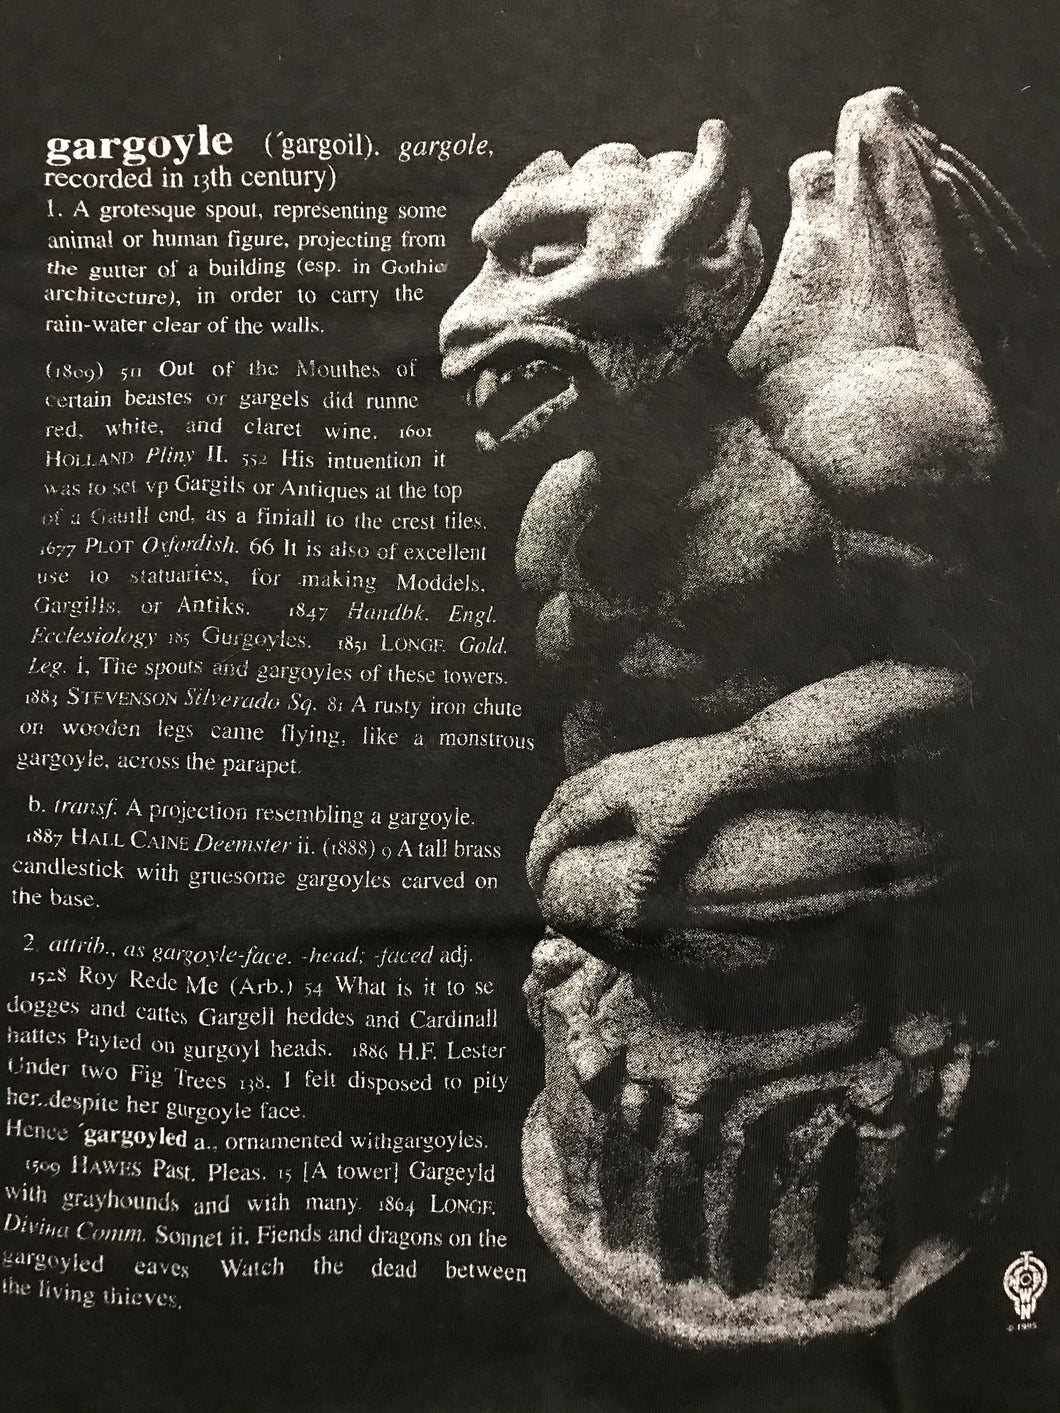 gargoyle (´gargoil). gargole,
recorded in 13th century)
1. A grotesque spout, representing some
animal or human figure, projecting from
the gutter of a building (esp. in Gothic
architecture), in order to carry the
rain-water clear of the walls.
(1809) 511 Out of the Mouthes of
certain beastes or gargels did runne
red, white, and claret wine. 1601
HOLLAND Pliny II. 552 His intuention it
was to set vp Gargils or Antiques at the top
of a Gauill end, as a finiall to the crest tiles.
1677 PLOT Oxfordish. 66 It is also of excellent
use to statuaries, for making Moddels,
Gargills, or Antiks. 1847 Handbk. Engl.
Ecclesiology 185 Gurgoyles. 1851 LONGF. Gold.
Leg. i, The spouts and gargoyles of these towers.
1883 STEVENSON Silverado Sq. 81 A rusty iron chute
on wooden legs came flying, like a monstrous
gargoyle, across the parapet.
b. transf. A projection resembling a gargoyle.
1887 HALL CAINE Deemster ii. (1888) 9 A tall brass
candlestick with gruesome gargoyles carved on
the base.
2. attrib., as gargoyle-face. -head; -faced adj.
1528 Roy Rede Me (Arb.) 54 What is it to se
dogges and cattes Gargell heddes and Cardinall
hattes Payted on gurgoyl heads. 1886 H.F. Lester
Under two Fig Trees 138, I felt disposed to pity
her..despite her gurgoyle face.
Hence ´gargoyled a., ornamented withgargoyles.
1509 HAWES Past. Pleas. 15 [A tower] Gargeyld
with grayhounds and with many. 1864 LONGF.
Divina Comm. Sonnet ii, Fiends and dragons on the
gargoyled eaves Watch the dead between
the living thieves.
© 1995